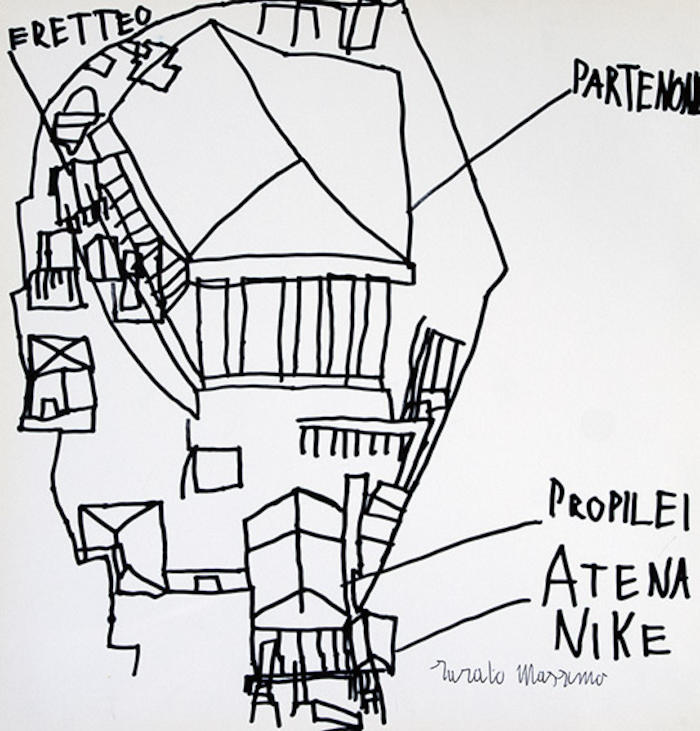 ERETTEO
PARTENON
PROPILEI
ATENA
NIKE
Massimo